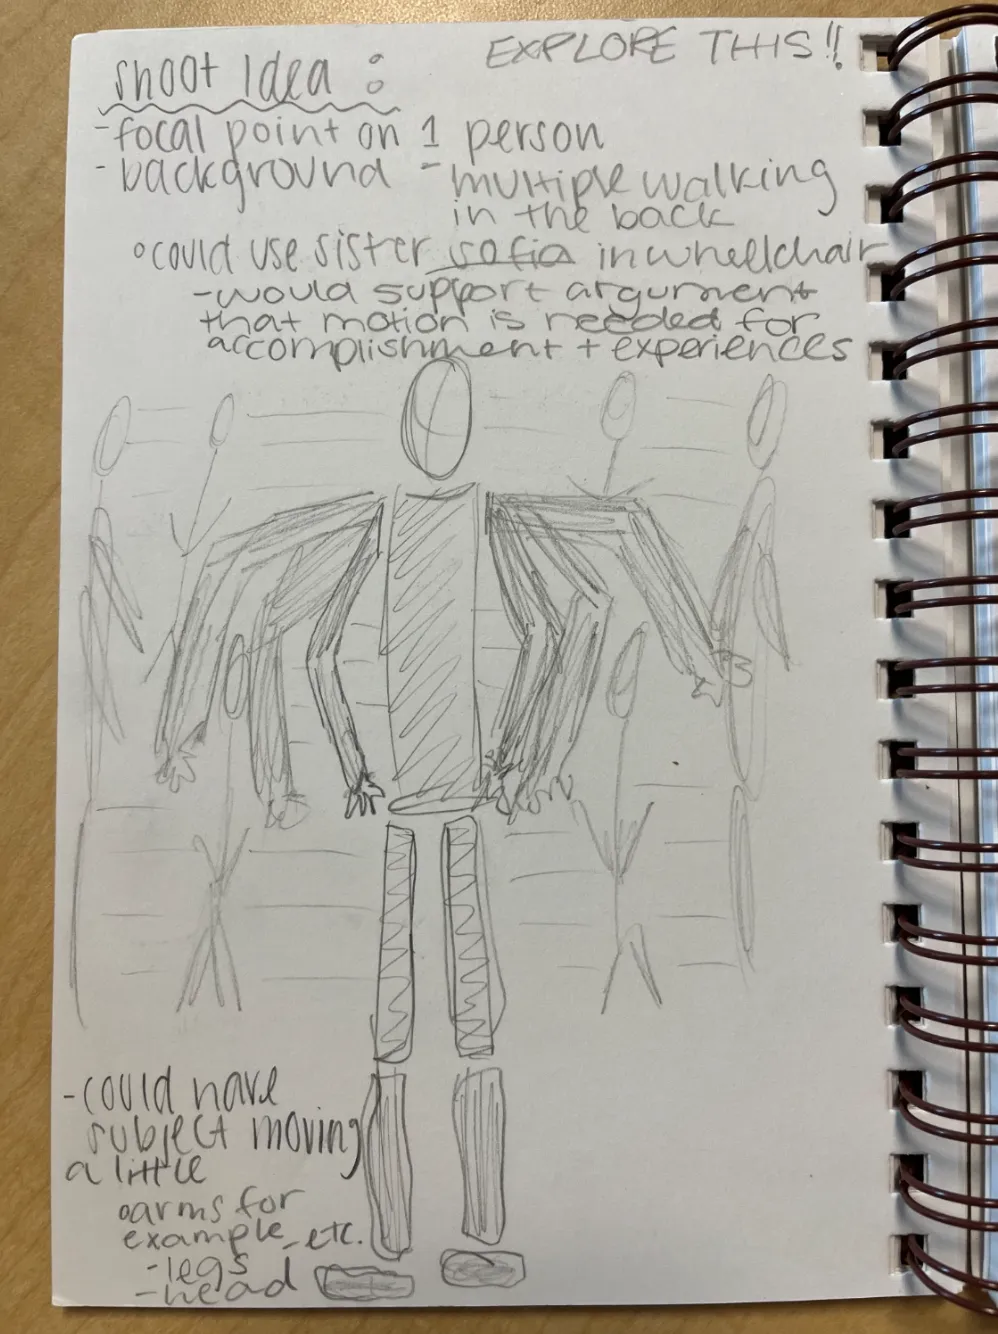 EXPLORE THIS!!
shoot Idea :
- focal point on 1 person
- background - multiple walking
in the back
◦ could use sister sofia in wheelchair
- would support argument
that motion is needed for
accomplishment + experiences
- could have
subject moving
a little
◦ arms for
example, etc.
- legs
- head